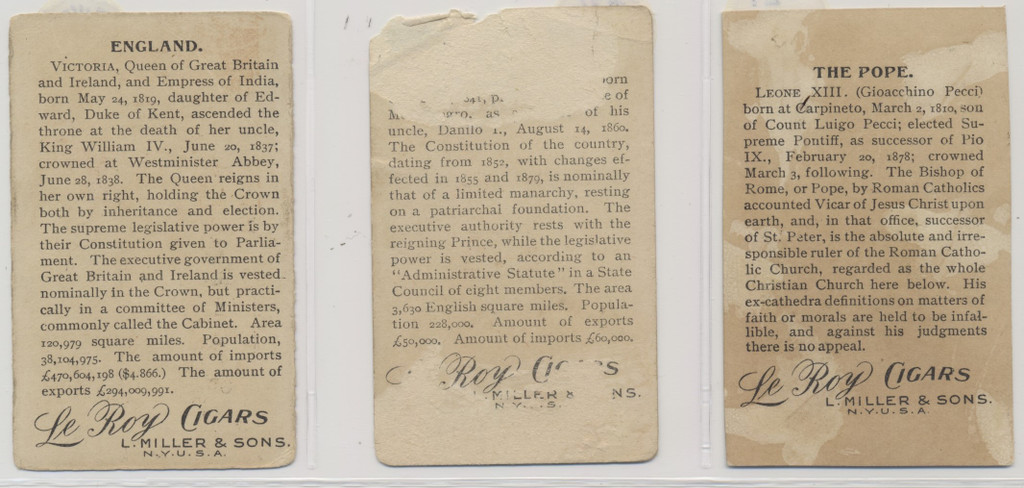 ENGLAND.
VICTORIA, Queen of Great Britain
and Ireland, and Empress of India,
born May 24, 1819, daughter of Ed-
ward, Duke of Kent, ascended the
throne at the death of her uncle,
King William IV., June 20, 1837;
crowned at Westminister Abbey,
June 28, 1838. The Queen reigns in
her own right, holding the Crown
both by inheritance and election.
The supreme legislative power is by
their Constitution given to Parlia-
ment. The executive government of
Great Britain and Ireland is vested
nominally in the Crown, but practi-
cally in a committee of Ministers,
commonly called the Cabinet. Area
120,979 square miles. Population,
38,104,975. The amount of imports
£470,604,198 ($4.866.) The amount of
exports £294,009,991.
Le Roy CIGARS
L. MILLER & SONS.
N.Y.U.S.A.
of
as of his
uncle, Danilo I., August 14, 1860.
The Constitution of the country,
dating from 1852, with changes ef-
fected in 1855 and 1879, is nominally
that of a limited manarchy, resting
on a patriarchal foundation. The
executive authority rests with the
reigning Prince, while the legislative
power is vested, according to an
"Administrative Statute" in a State
Council of eight members. The area
3,630 English square miles. Popula-
tion 228,000. Amount of exports
£50,000. Amount of imports £60,000.
Roy
MILLER &
THE POPE.
LEONE XIII. (Gioacchino Pecci)
born at Carpineto, March 2, 1810, son
of Count Luigo Pecci; elected Su-
preme Pontiff, as successor of Pio
IX., February 20, 1878; crowned
March 3, following. The Bishop of
Rome, or Pope, by Roman Catholics
accounted Vicar of Jesus Christ upon
earth, and, in that office, successor
of St. Peter, is the absolute and irre-
sponsible ruler of the Roman Catho-
lic Church, regarded as the whole
Christian Church here below. His
ex-cathedra definitions on matters of
faith or morals are held to be infal-
lible, and against his judgments
there is no appeal.
Le Roy CIGARS
L. MILLER & SONS.
N.Y.U.S.A.